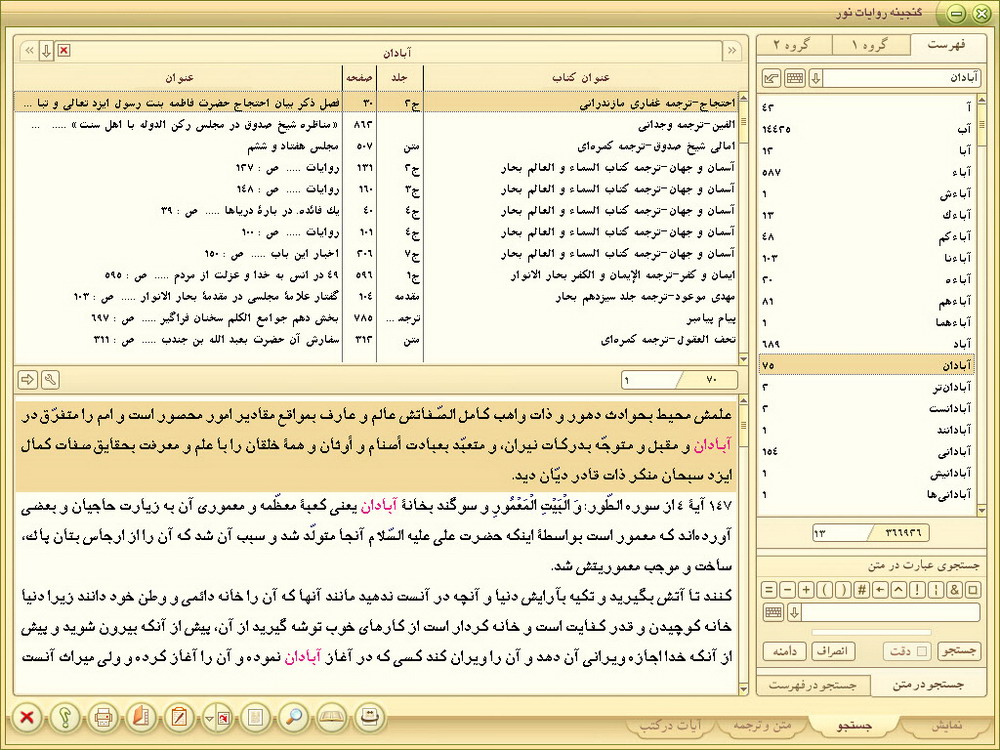 گنجینه روایات نور
فهرست
گروه ۱
گروه ۲
آبادان
آ ۴۲
آب ۱۴۴۲۵
آبا ۱۲
آباء ۵۸۷
آباءش ۱
آباءك ۱۳
آباءكم ۴۸
آباءنا ۱۰۳
آباءه ۲۰
آباءهم ۸۱
آباءهما ۱
آباد ۶۸۹
آبادان ۷۵
آبادان‌تر ۲
آبادانست ۲
آبادانند ۱
آبادانی ۱۵۴
آبادانیش ۱
آبادانی‌ها ۱
۱۳ / ۳۶۶۹۲۶
جستجوی عبارت در متن
= - + ( ) # ← ^ ! ¦ & □
جستجو
دقت
انصراف
دامنه
جستجو در متن
جستجو در فهرست
آبادان
عنوان کتاب جلد صفحه عنوان
احتجاج-ترجمه غفاری مازندرانی ج۲ ۳۰ فصل ذکر بیان احتجاج حضرت فاطمه بنت رسول ایزد تعالی و تبا ...
الفین-ترجمه وجدانی ۸۶۲ «مناظره شیخ صدوق در مجلس رکن الدوله با اهل سنت» ..... ...
امالی شیخ صدوق-ترجمه کمره‌ای متن ۵۰۷ مجلس هفتاد و ششم
آسمان و جهان-ترجمه کتاب السماء و العالم بحار ج۲ ۱۳۱ روایات ..... ص : ۱۲۷
آسمان و جهان-ترجمه کتاب السماء و العالم بحار ج۳ ۱۶۰ روایات ..... ص : ۱۴۸
آسمان و جهان-ترجمه کتاب السماء و العالم بحار ج۴ ۴۰ یك فائده. در بارهٔ دریاها ..... ص : ۳۹
آسمان و جهان-ترجمه کتاب السماء و العالم بحار ج۴ ۱۰۱ روایات ..... ص : ۱۰۰
آسمان و جهان-ترجمه کتاب السماء و العالم بحار ج۷ ۲۰۶ اخبار این باب ..... ص : ۱۵۰
ایمان و کفر-ترجمه الإیمان و الکفر بحار الانوار ج۱ ۵۹۶ ۴۹ در انس به خدا و عزلت از مردم ..... ص : ۵۹۵
مهدی موعود-ترجمه جلد سیزدهم بحار مقدمه ۱۰۴ گفتار علامهٔ مجلسی در مقدمهٔ بحار الانوار ..... ص : ۱۰۳
پیام پیامبر ترجمه ... ۷۸۵ بخش دهم جوامع الکلم سخنان فراگیر ..... ص : ۶۹۷
تحف العقول-ترجمه کمره‌ای متن ۳۱۲ سفارش آن حضرت بعبد الله بن جندب ..... ص : ۳۱۱
۱ / ۷۰
علمش محیط بحوادث دهور و ذات واهب کامل الصّفاتش عالم و عارف بمواقع مقادیر امور محصور است و امم را متفرّق در
آبادان و مقبل و متوجّه بدرکات نیران، و متعبّد بعبادت أصنام و أوثان و همهٔ خلقان را با علم و معرفت بحقایق صفات کمال
ایزد سبحان منکر ذات قادر دیّان دید.
۱۴۷ آیهٔ ۴ از سوره الطّور: وَ الْبَیْتِ الْمَعْمُورِ و سوگند بخانهٔ آبادان یعنی کعبهٔ معظّمه و معموری آن به زیارت حاجیان و بعضی
آورده‌اند که معمور است بواسطهٔ اینکه حضرت علی علیه السّلام آنجا متولّد شد و سبب آن شد که آن را از ارجاس بتان پاك،
ساخت و موجب معموریتش شد.
کنند تا آتش بگیرید و تکیه بآرایش دنیا و آنچه در آنست ندهید مانند آنها که آن را خانه دائمی و وطن خود دانند زیرا دنیا
خانه کوچیدن و قدر کفایت است و خانه کردار است از کارهای خوب توشه گیرید از آن، پیش از آنکه بیرون شوید و پیش
از آنکه خدا اجازه ویرانی آن دهد و آن را ویران کند کسی که در آغاز آبادان نموده و آن را آغاز کرده و ولی میراث آنست
نمایش
جستجو
متن و ترجمه
آیات در کتب